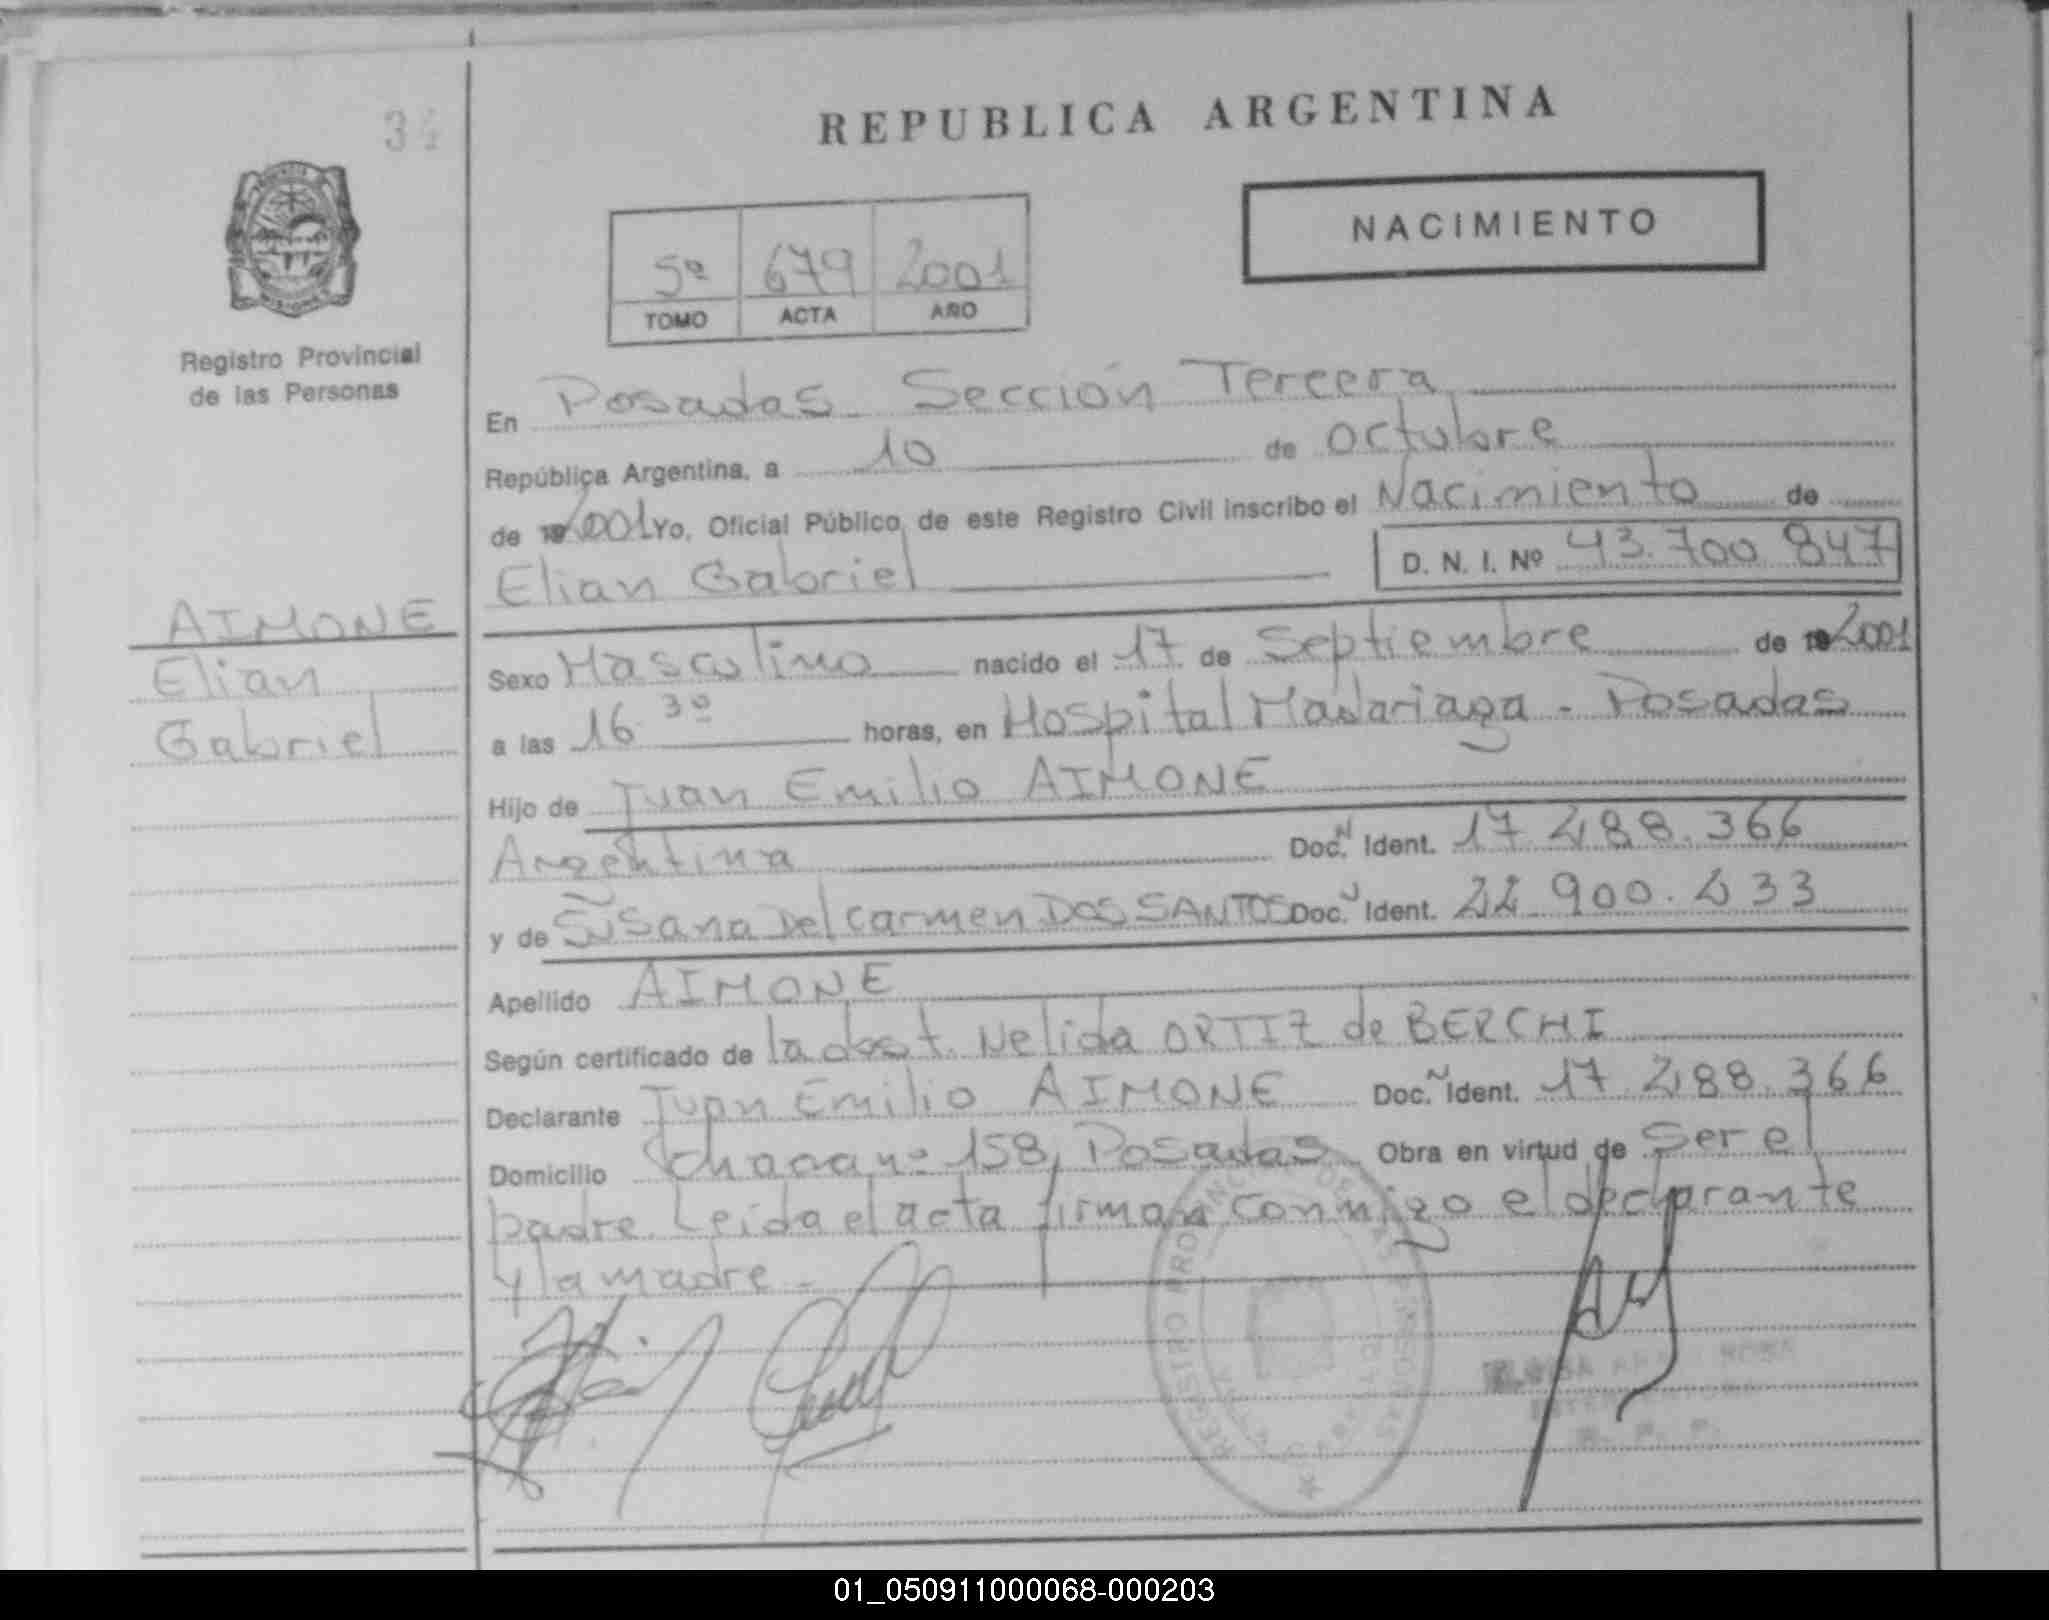 34
REPUBLICA ARGENTINA
NACIMIENTO
5º 679 2001
TOMO ACTA AÑO
Registro Provincial
de las Personas
En Posadas Sección Tercera
República Argentina, a 10 de octubre
de 19 2001 Yo, Oficial Público de este Registro Civil inscribo el Nacimiento de
Elian Gabriel D. N. I. Nº 43.700 847
AIMONE
Elian
Gabriel
Sexo Masculino nacido el 17 de Septiembre de 19 2001
a las 16 30 horas, en Hospital Madariaga - Posadas
Hijo de Juan Emilio AIMONE
Argentina Doc. N Ident. 17 288.366
y de Susana Del Carmen DOS SANTOS Doc. Ident. 22 900.233
Apellido AIMONE
Según certificado de la obst. Nelida ORTIZ de BERCHI
Declarante Juan Emilio AIMONE Doc. N Ident. 17 288.366
Domicilio nº 158, Posadas Obra en virtud de Ser el
padre. Leída el acta firman conmigo el declarante
y la madre -
REGISTRO PROVINCIAL DE LAS PERSONAS
01_050911000068-000203